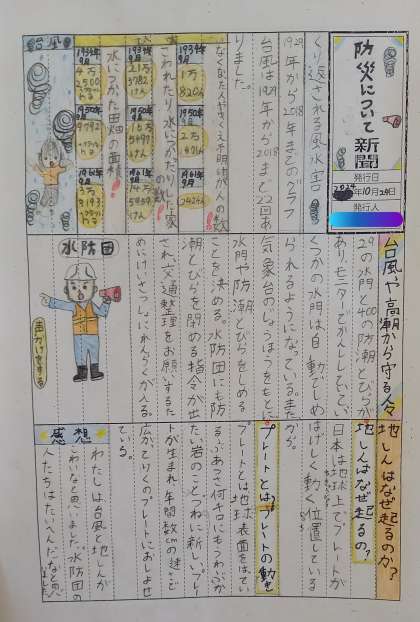 防災について新聞
発行日
2024年10月29日
発行人
くり返される風水害
1929年から2018年までのグラフ
台風は1929年から2018まで22回あ
りました。
なくなった人やゆくえ不明けが人の数
1934年9月
1950年9月
1961年9月
こわれたり、水につかったりした家
の数
1934年9月
1950年9月
1961年9月
水につかった田畑の面積
1934年9月
1950年9月
1961年9月
台風
台風や高潮から守る人々
29の水門と400の防潮とびらが
あり、モニターでかんしして
くつかの水門は自動でしめ
られるようになっている。また
気象台のじょうほうをもとに
水門や防潮とびらをしめる
ことを決める。水防団にも防
潮とびらを閉める指令が出
され、交通整理をお願いするた
めにけいさつしょにれんらくが入る。
水防団
声かけをする
地しんはなぜ起るのか?
地しんはなぜ起るの?
日本は地球上でプレートが
はげしく動く位置している
から。
プレートとは?プレートの動き
プレートとは地球表面をはてい
るぶあつさ何キロにもうわぶか
たい岩のことつねに新しいプレー
トが生まれ年間数cmの速さで
広がてりくのプレートにおしよせ
ている。
感想
わたしは台風と地しんが
こわいなと思いました水防団の
人たちはたいへんだなと思い
ました